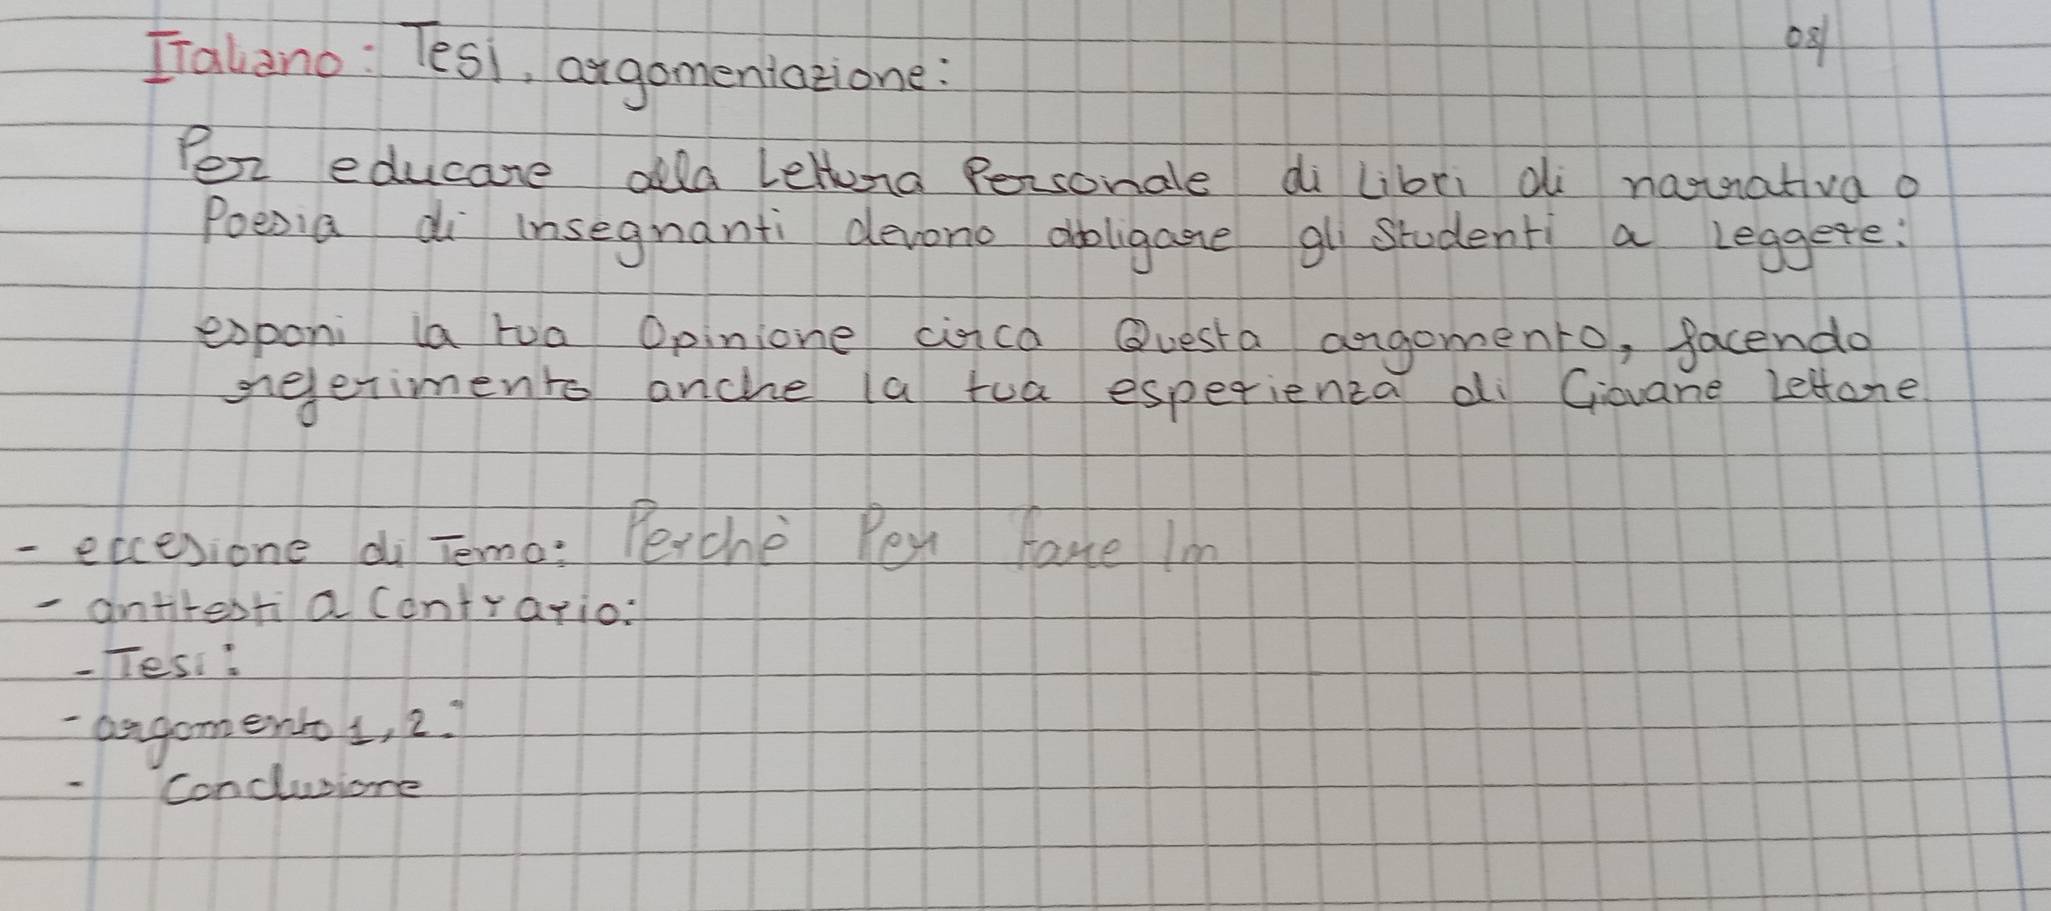 Italiano: Tesi, argomentazione:
08/
Per educare alla Lettura Personale di Libri di narrativa o
Poesia di insegnanti devono obligare gli Studenti a Leggere:
esponi la tua Opinione circa Questa argomento, facendo
referimento anche la tua esperienza di Giovane Lettore
- eccesione di Tema: Perchè Per fare im
- antitesti a Contrario:
- Tesi:
- argomento 1, 2:
- Conclusione